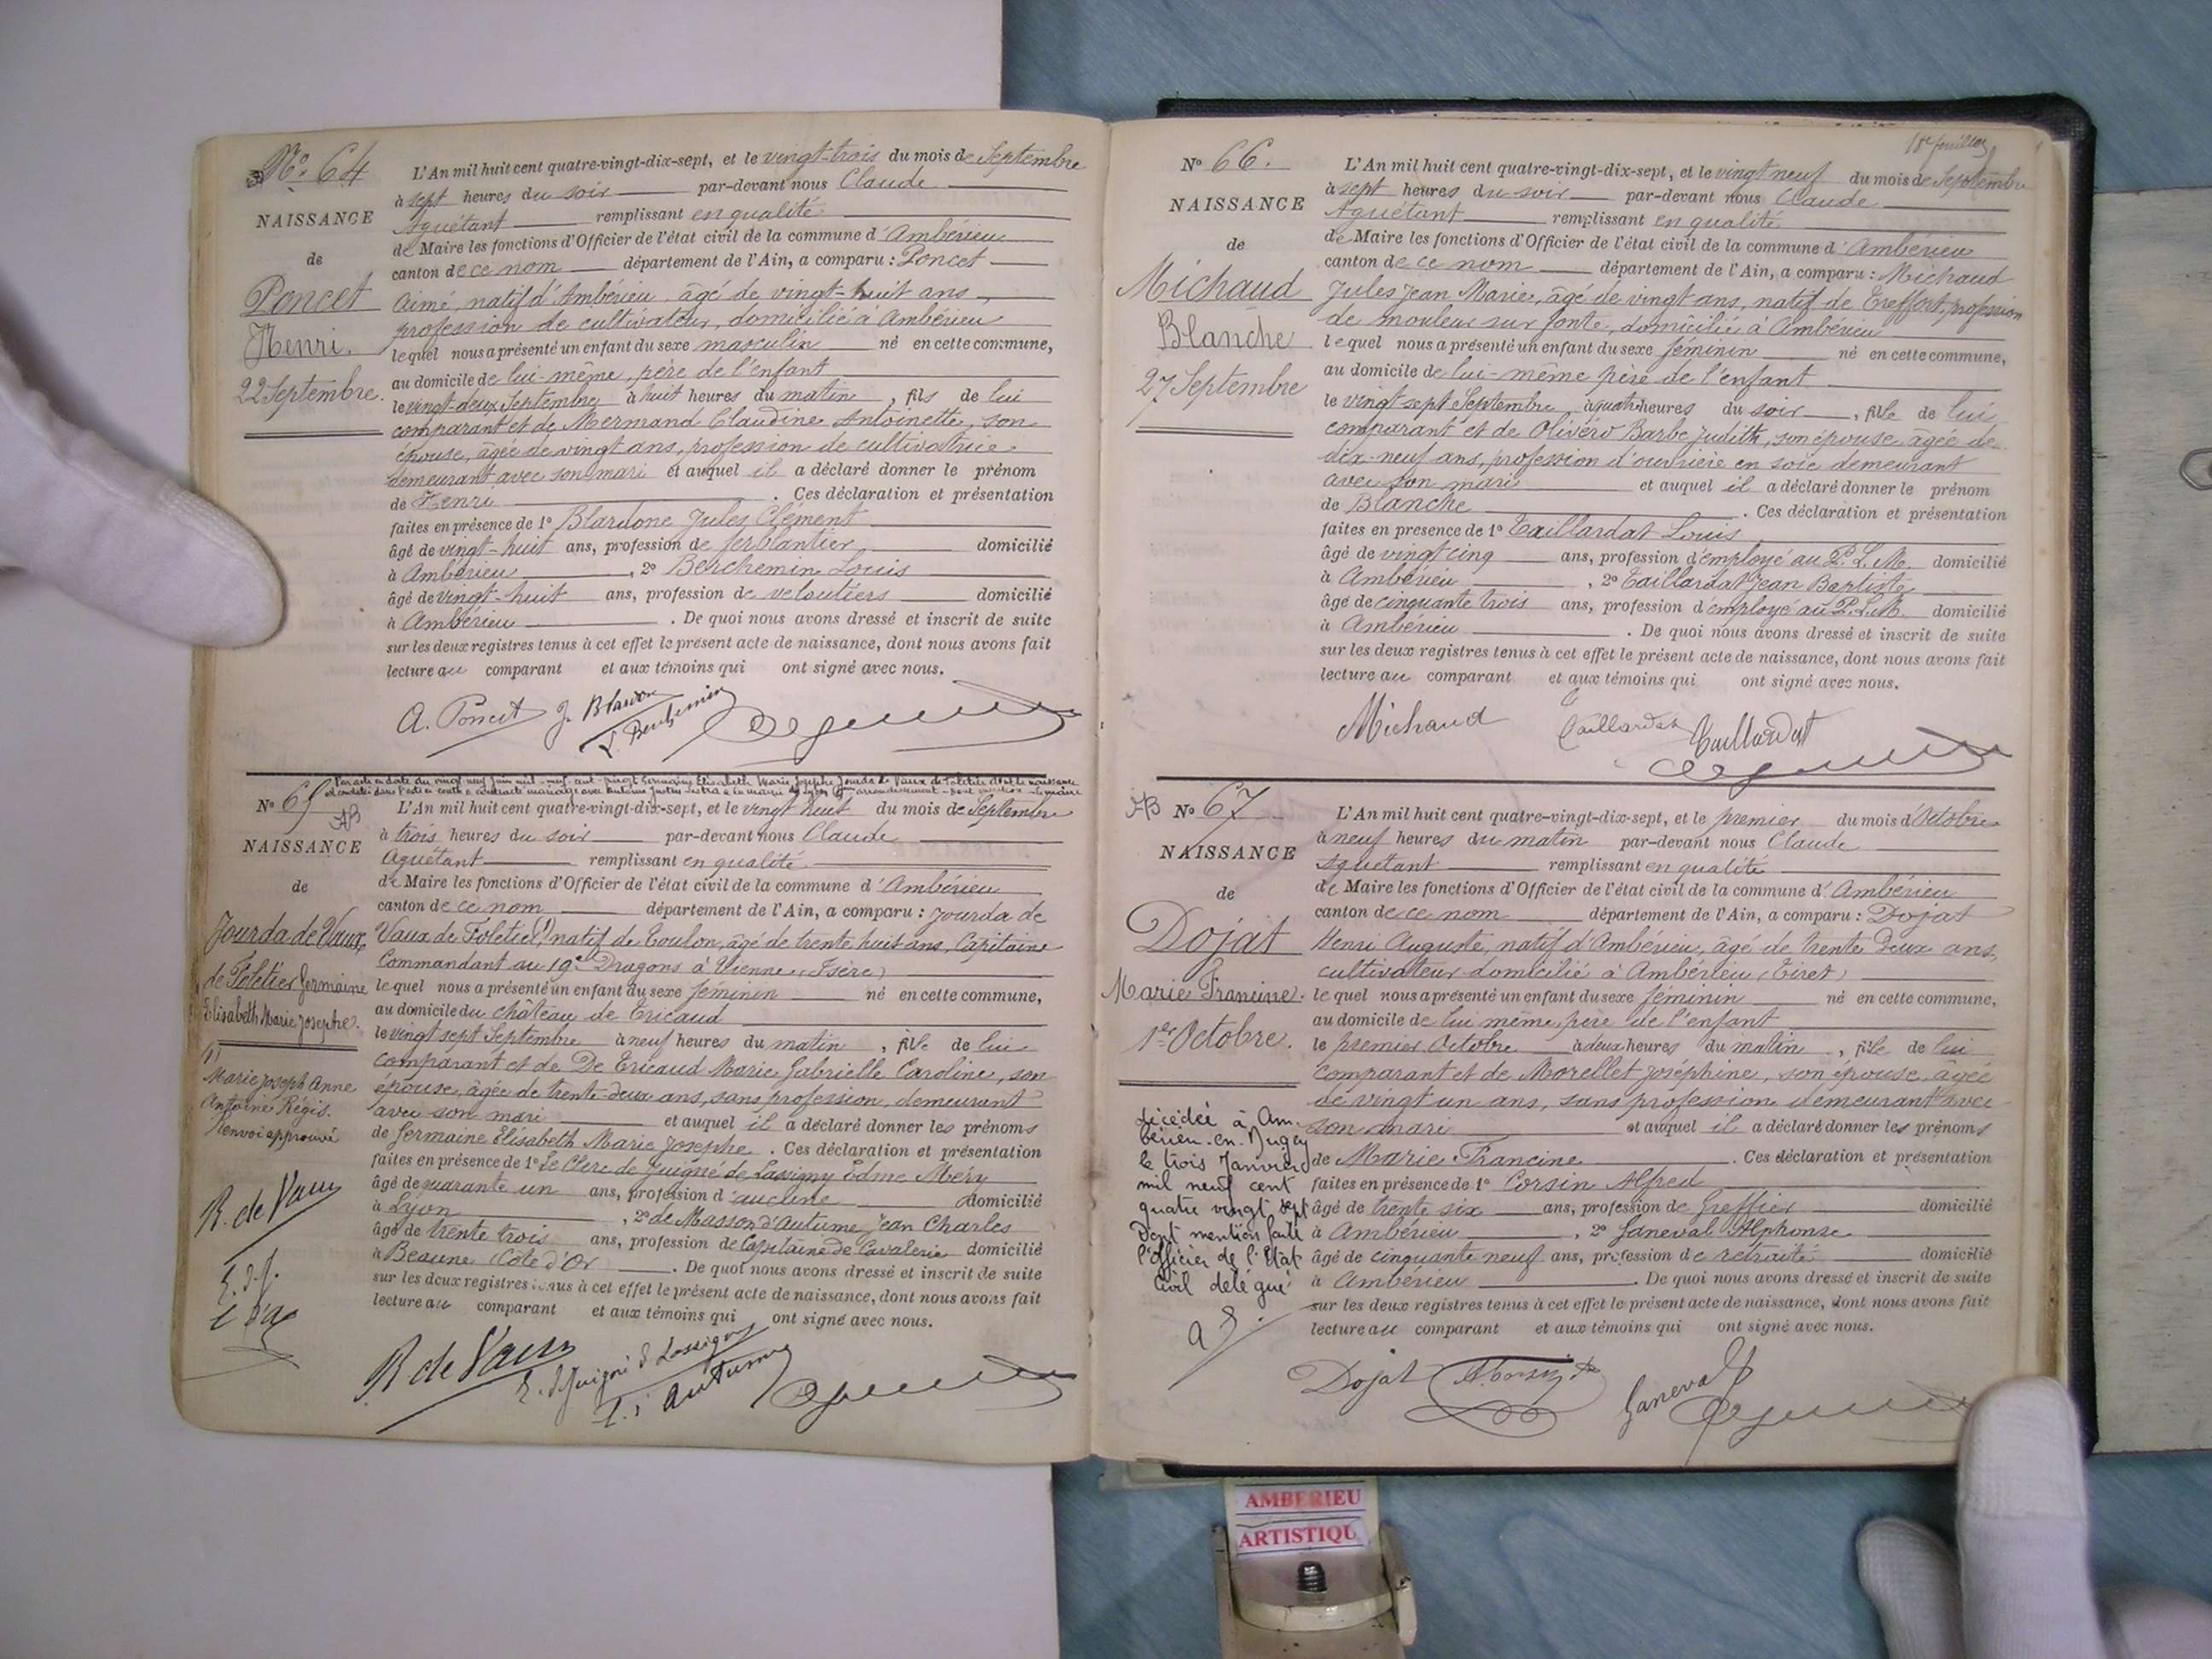 Nº 64
NAISSANCE
de
Poncet
Henri.
22 Septembre.
L'An mil huit cent quatre-vingt-dix-sept, et le vingt-trois du mois de Septembre
à sept heures du soir par-devant nous Claude
Aguétant remplissant en qualité
de Maire les fonctions d'Officier de l'état civil de la commune d'Ambérieu
canton de ce nom département de l'Ain, a comparu : Poncet
Aimé, natif d'Ambérieu, âgé de vingt-huit ans,
profession de cultivateur, domicilié à Ambérieu
lequel nous a présenté un enfant du sexe masculin né en cette commune,
au domicile de lui-même, père de l'enfant
le vingt-deux Septembre à huit heures du matin, fils de lui
comparant et de Mermand Claudine Antoinette, son
épouse, âgée de vingt ans, profession de cultivatrice
demeurant avec son mari et auquel il a déclaré donner le prénom
de Henri. Ces déclaration et présentation
faites en présence de 1º Blardone Jules Clément
âgé de vingt-huit ans, profession de ferblantier domicilié
à Ambérieu, 2º Berchemin Louis
âgé de vingt-huit ans, profession de veloutiers domicilié
à Ambérieu. De quoi nous avons dressé et inscrit de suite
sur les deux registres tenus à cet effet le présent acte de naissance, dont nous avons fait
lecture au comparant et aux témoins qui ont signé avec nous.
A. Poncet J. Blardone
L. Berchemin
Par acte en date du vingt neuf Juin mil-neuf-cent-vingt Germaine Elisabeth Marie Josephe Jourda de Vaux de Foletier dont la naissance
est constatée dans l'acte ci-contre a contracté mariage avec
Nº 65
NAISSANCE
de
Jourda de Vaux
de Foletier Germaine
Elisabeth Marie Josephe.
(1)
Marie Joseph Anne
Antoine Régis.
Renvoi approuvé
R. de Vaux
L'An mil huit cent quatre-vingt-dix-sept, et le vingt huit du mois de Septembre
à trois heures du soir par-devant nous Claude
Aguétant remplissant en qualité
de Maire les fonctions d'Officier de l'état civil de la commune d'Ambérieu
canton de ce nom département de l'Ain, a comparu : Jourda de
Vaux de Foletier (1) natif de Toulon, âgé de trente huit ans, Capitaine
Commandant au 19e Dragons à Vienne (Isère)
lequel nous a présenté un enfant du sexe féminin né en cette commune,
au domicile du château de Tricaud
le vingt sept Septembre à neuf heures du matin, fille de lui
comparant et de De Tricaud Marie Gabrielle Caroline, son
épouse, âgée de trente-deux ans, sans profession, demeurant
avec son mari et auquel il a déclaré donner les prénoms
de Germaine Elisabeth Marie Josephe. Ces déclaration et présentation
faites en présence de 1º Le Clerc de Juigné de Lassigny Edme Méry
âgé de quarante un ans, profession d'aucune domicilié
à Lyon, 2º de Masson d'Autume Jean Charles
âgé de trente trois ans, profession de Capitaine de Cavalerie domicilié
à Beaune (Côte d'Or). De quoi nous avons dressé et inscrit de suite
sur les deux registres tenus à cet effet le présent acte de naissance, dont nous avons fait
lecture au comparant et aux témoins qui ont signé avec nous.
R de Vaux
E. d Juigné d Lassigny
d'Autume
Nº 66.
NAISSANCE
de
Michaud
Blanche
27 Septembre
L'An mil huit cent quatre-vingt-dix-sept, et le vingt neuf du mois de Septembre
à sept heures du soir par-devant nous Claude
Aguétant remplissant en qualité
de Maire les fonctions d'Officier de l'état civil de la commune d'Ambérieu
canton de ce nom département de l'Ain, a comparu : Michaud
Jules Jean Marie, âgé de vingt ans, natif de Treffort, profession
de mouleur sur fonte, domicilié à Ambérieu
lequel nous a présenté un enfant du sexe féminin né en cette commune,
au domicile de lui-même père de l'enfant
le vingt sept Septembre à quatre heures du soir, fille de lui
comparant et de Olivéro Barbe Judith, son épouse âgée de
dix-neuf ans, profession d'ouvrière en soie demeurant
avec son mari et auquel il a déclaré donner le prénom
de Blanche. Ces déclaration et présentation
faites en présence de 1º Taillardat Louis
âgé de vingt cinq ans, profession d'employé au P. L. M. domicilié
à Ambérieu, 2º Taillardat Jean Baptiste
âgé de cinquante trois ans, profession d'employé au P. L. M. domicilié
à Ambérieu. De quoi nous avons dressé et inscrit de suite
sur les deux registres tenus à cet effet le présent acte de naissance, dont nous avons fait
lecture au comparant et aux témoins qui ont signé avec nous.
Michaud Taillardat Taillardat
Nº 67
NAISSANCE
de
Dojat
Marie Francine.
1er Octobre.
décédée à Am-
bérieu-en-Bugey
le trois Janvier
mil neuf cent
quatre vingt sept
Dont mention faite
l'Officier de l'Etat
Civil délégué
L'An mil huit cent quatre-vingt-dix-sept, et le premier du mois d'Octobre
à neuf heures du matin par-devant nous Claude
Aguétant remplissant en qualité
de Maire les fonctions d'Officier de l'état civil de la commune d'Ambérieu
canton de ce nom département de l'Ain, a comparu : Dojat
Henri Auguste, natif d'Ambérieu, âgé de trente deux ans,
cultivateur domicilié à Ambérieu (Tiret)
lequel nous a présenté un enfant du sexe féminin né en cette commune,
au domicile de lui même, père de l'enfant
le premier Octobre à deux heures du matin, fille de lui
comparant et de Morellet Joséphine, son épouse, âgée
de vingt un ans, sans profession demeurant avec
son mari et auquel il a déclaré donner les prénoms
de Marie Francine. Ces déclaration et présentation
faites en présence de 1º Corsin Alfred
âgé de trente six ans, profession de Greffier domicilié
à Ambérieu, 2º Ganeval Alphonse
âgé de cinquante neuf ans, profession de retraité domicilié
à Ambérieu. De quoi nous avons dressé et inscrit de suite
sur les deux registres tenus à cet effet le présent acte de naissance, dont nous avons fait
lecture au comparant et aux témoins qui ont signé avec nous.
Dojat A. Corsin Ganeval
AMBERIEU
ARTISTIQU